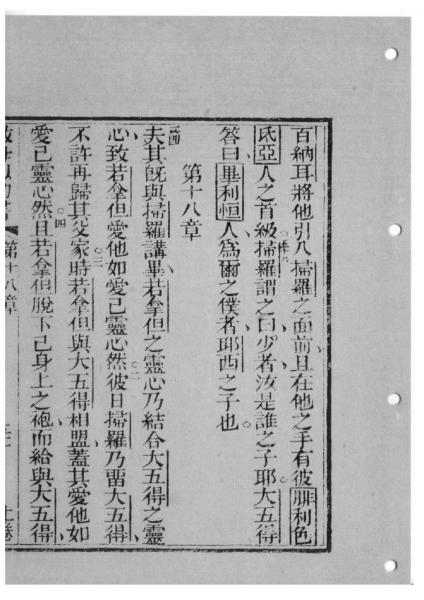 百納耳將他引入掃羅之面前且在他之手有彼腓利色
氐亞人之首級掃羅謂之曰少者汝是誰之子耶大五得
答曰畢利恒人為爾之僕者耶西之子也
第十八章
夫其既與掃羅講畢若拿但之靈心乃結合大五得之靈
心致若拿但愛他如愛己靈心然彼日掃羅乃留大五得
不許再歸其父家時若拿但與大五得相盟蓋其愛他如
愛己靈心然且若拿但脫下己身上之袍而給與大五得
第十八章